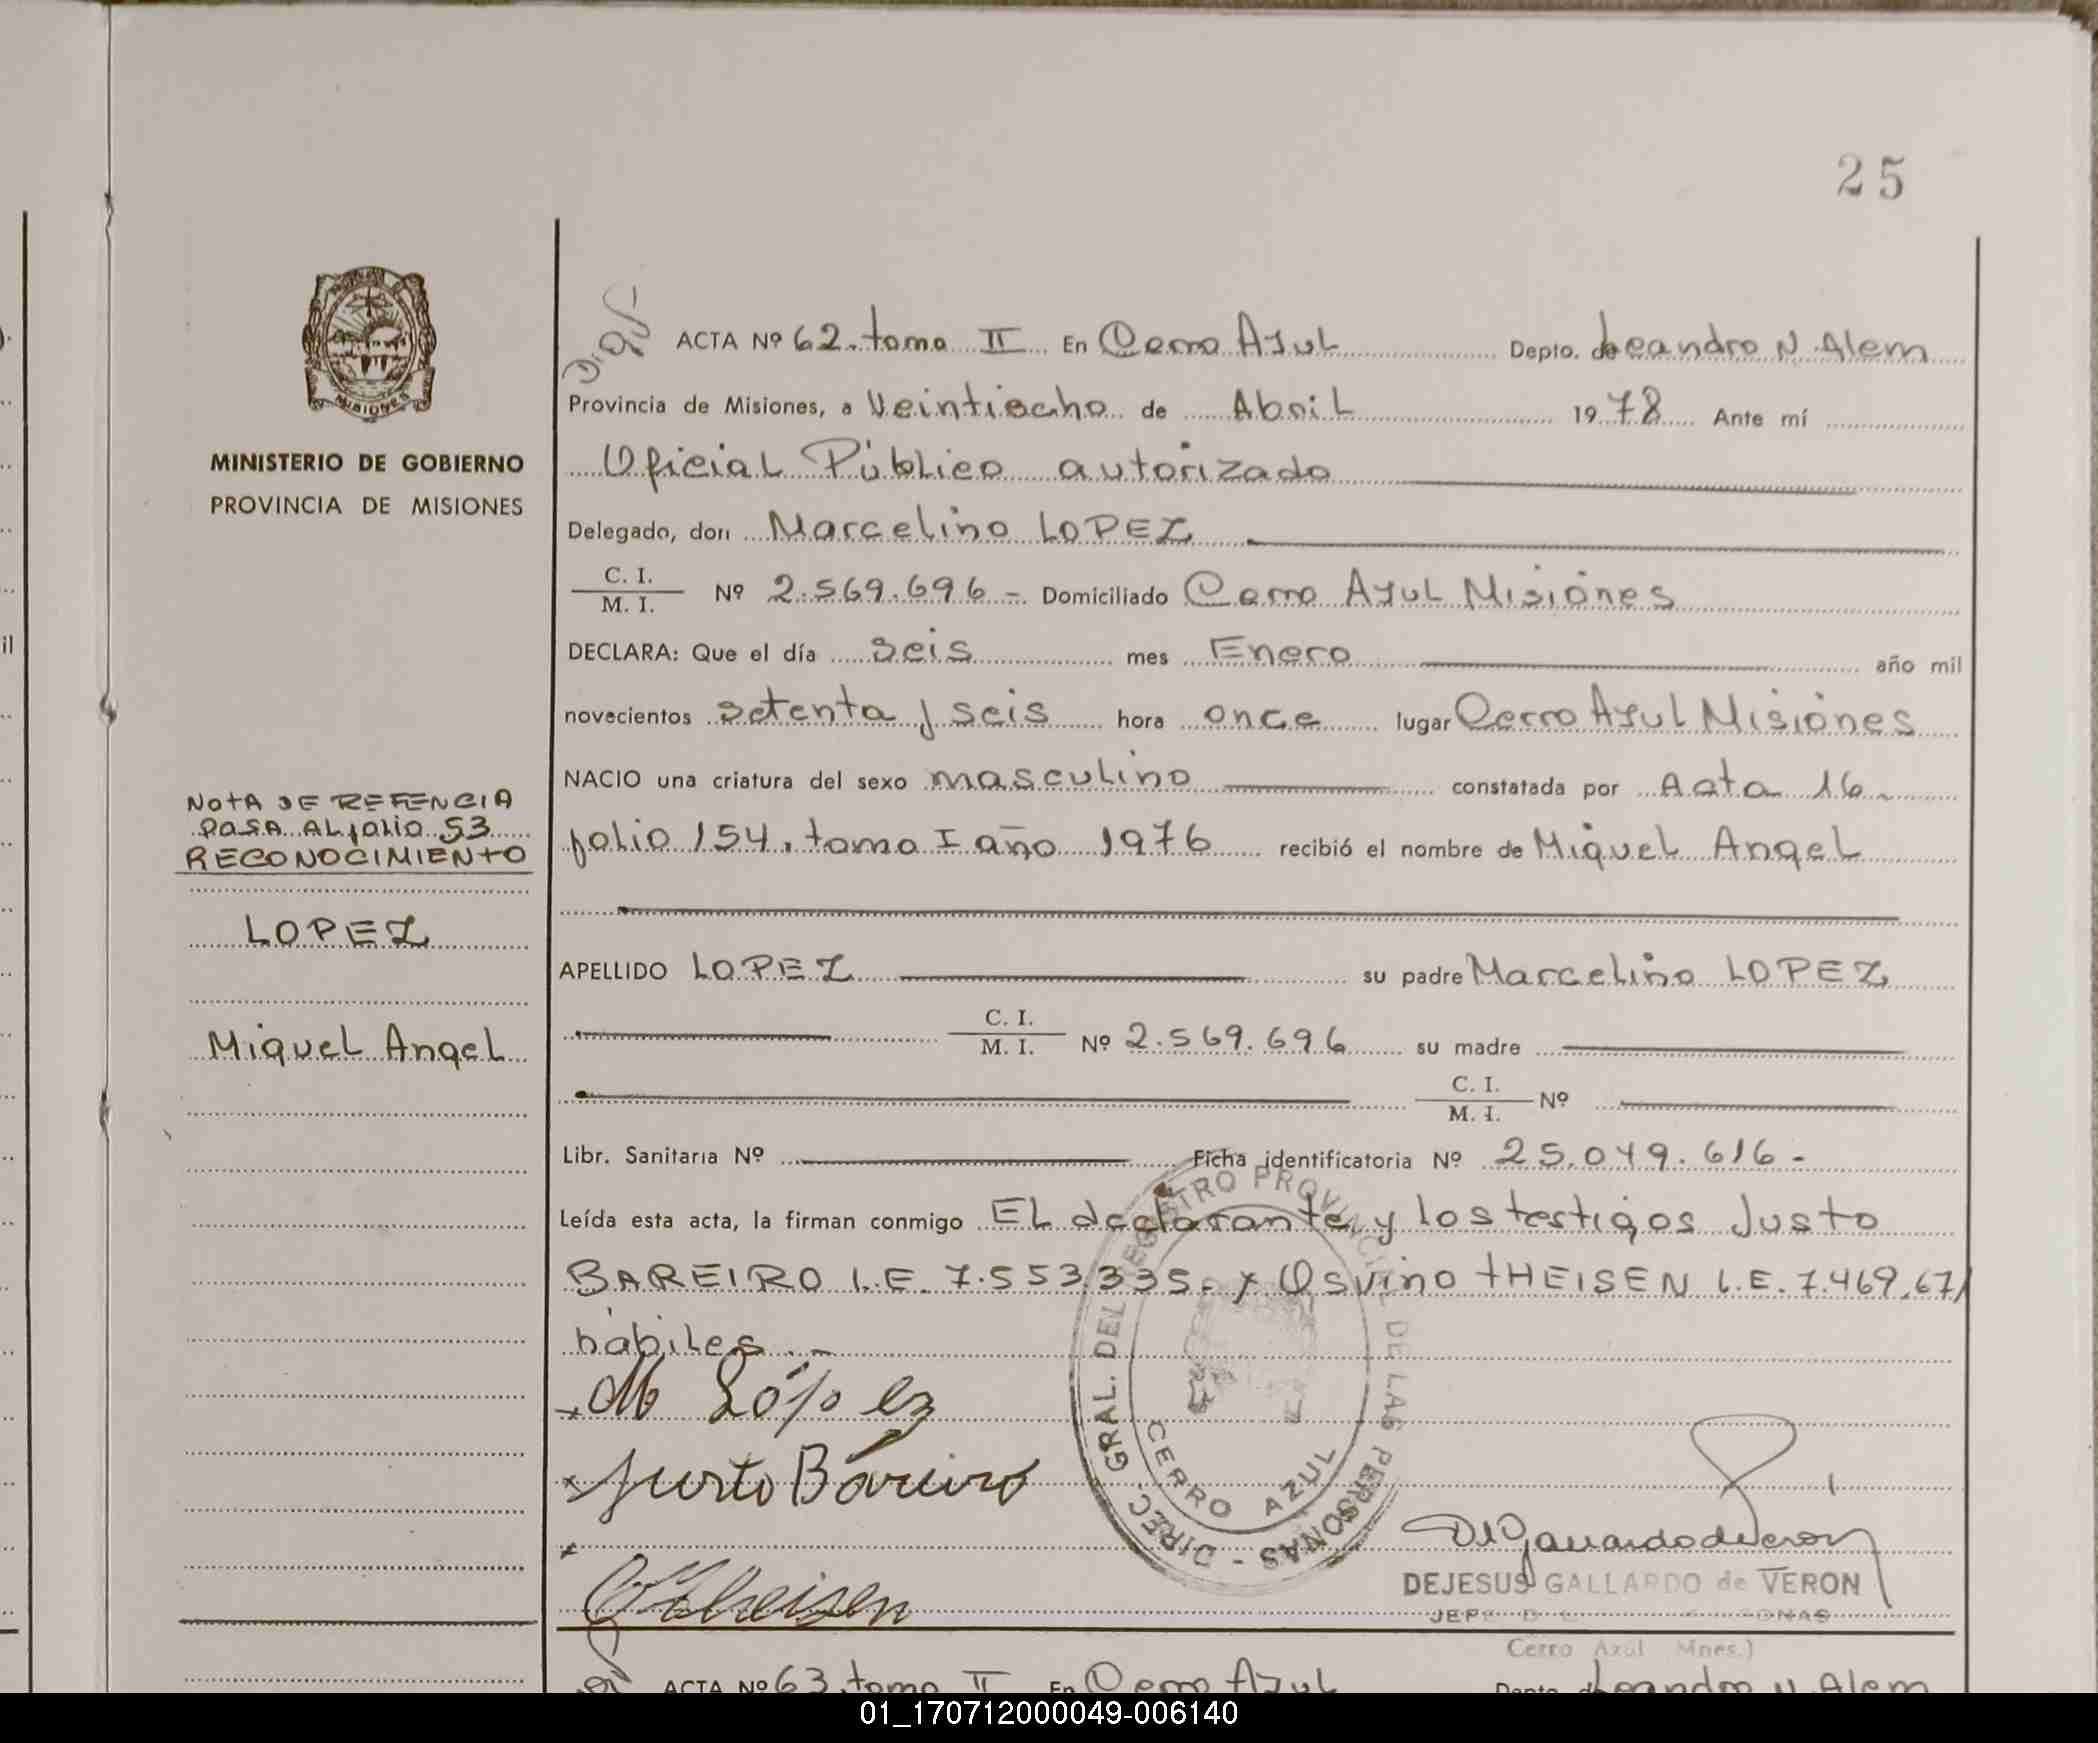 25
ACTA Nº 62. tomo II En Cerro Azul Depto. de Leandro N. Alem
Provincia de Misiones, a Veintiocho de Abril 1978 Ante mí
Oficial Público autorizado
Delegado, don Marcelino LOPEZ
C. I.
M. I. Nº 2.569.696 - Domiciliado Cerro Azul Misiones
DECLARA: Que el día seis mes Enero año mil
novecientos setenta y seis hora once lugar Cerro Azul Misiones
NACIO una criatura del sexo masculino constatada por Acta 16
folio 154. tomo I año 1976 recibió el nombre de Miguel Angel
APELLIDO LOPEZ su padre Marcelino LOPEZ
C. I.
M. I. Nº 2.569.696 su madre
C. I.
M. I. Nº
Libr. Sanitaria Nº Ficha identificatoria Nº 25.049.616-
Leída esta acta, la firman conmigo EL declarante y los testigos Justo
BAREIRO L.E. 7.553.335.- y Osvino tHEISEN L.E. 7.469.671
hábiles.-
M López
Justo Bareiro
O Theisen
DIREC. GRAL. DEL REGISTRO PROVINCIAL DE LAS PERSONAS -
CERRO AZUL
DEJESUS GALLARDO de VERON
Cerro Azul Mnes.)
MISIONES
MINISTERIO DE GOBIERNO
PROVINCIA DE MISIONES
NOtA DE REFENCIA
PASA AL folio 53
RECONOCIMIENtO
LOPEZ
Miguel Angel
ACTA Nº 63. tomo II En Cerro Azul Depto. de Leandro N. Alem
il
01_170712000049-006140